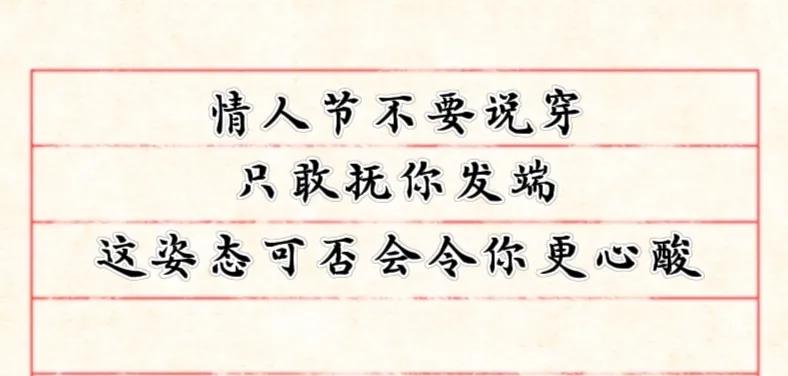 情人节不要说穿
只敢抚你发端
这姿态可否会令你更心酸